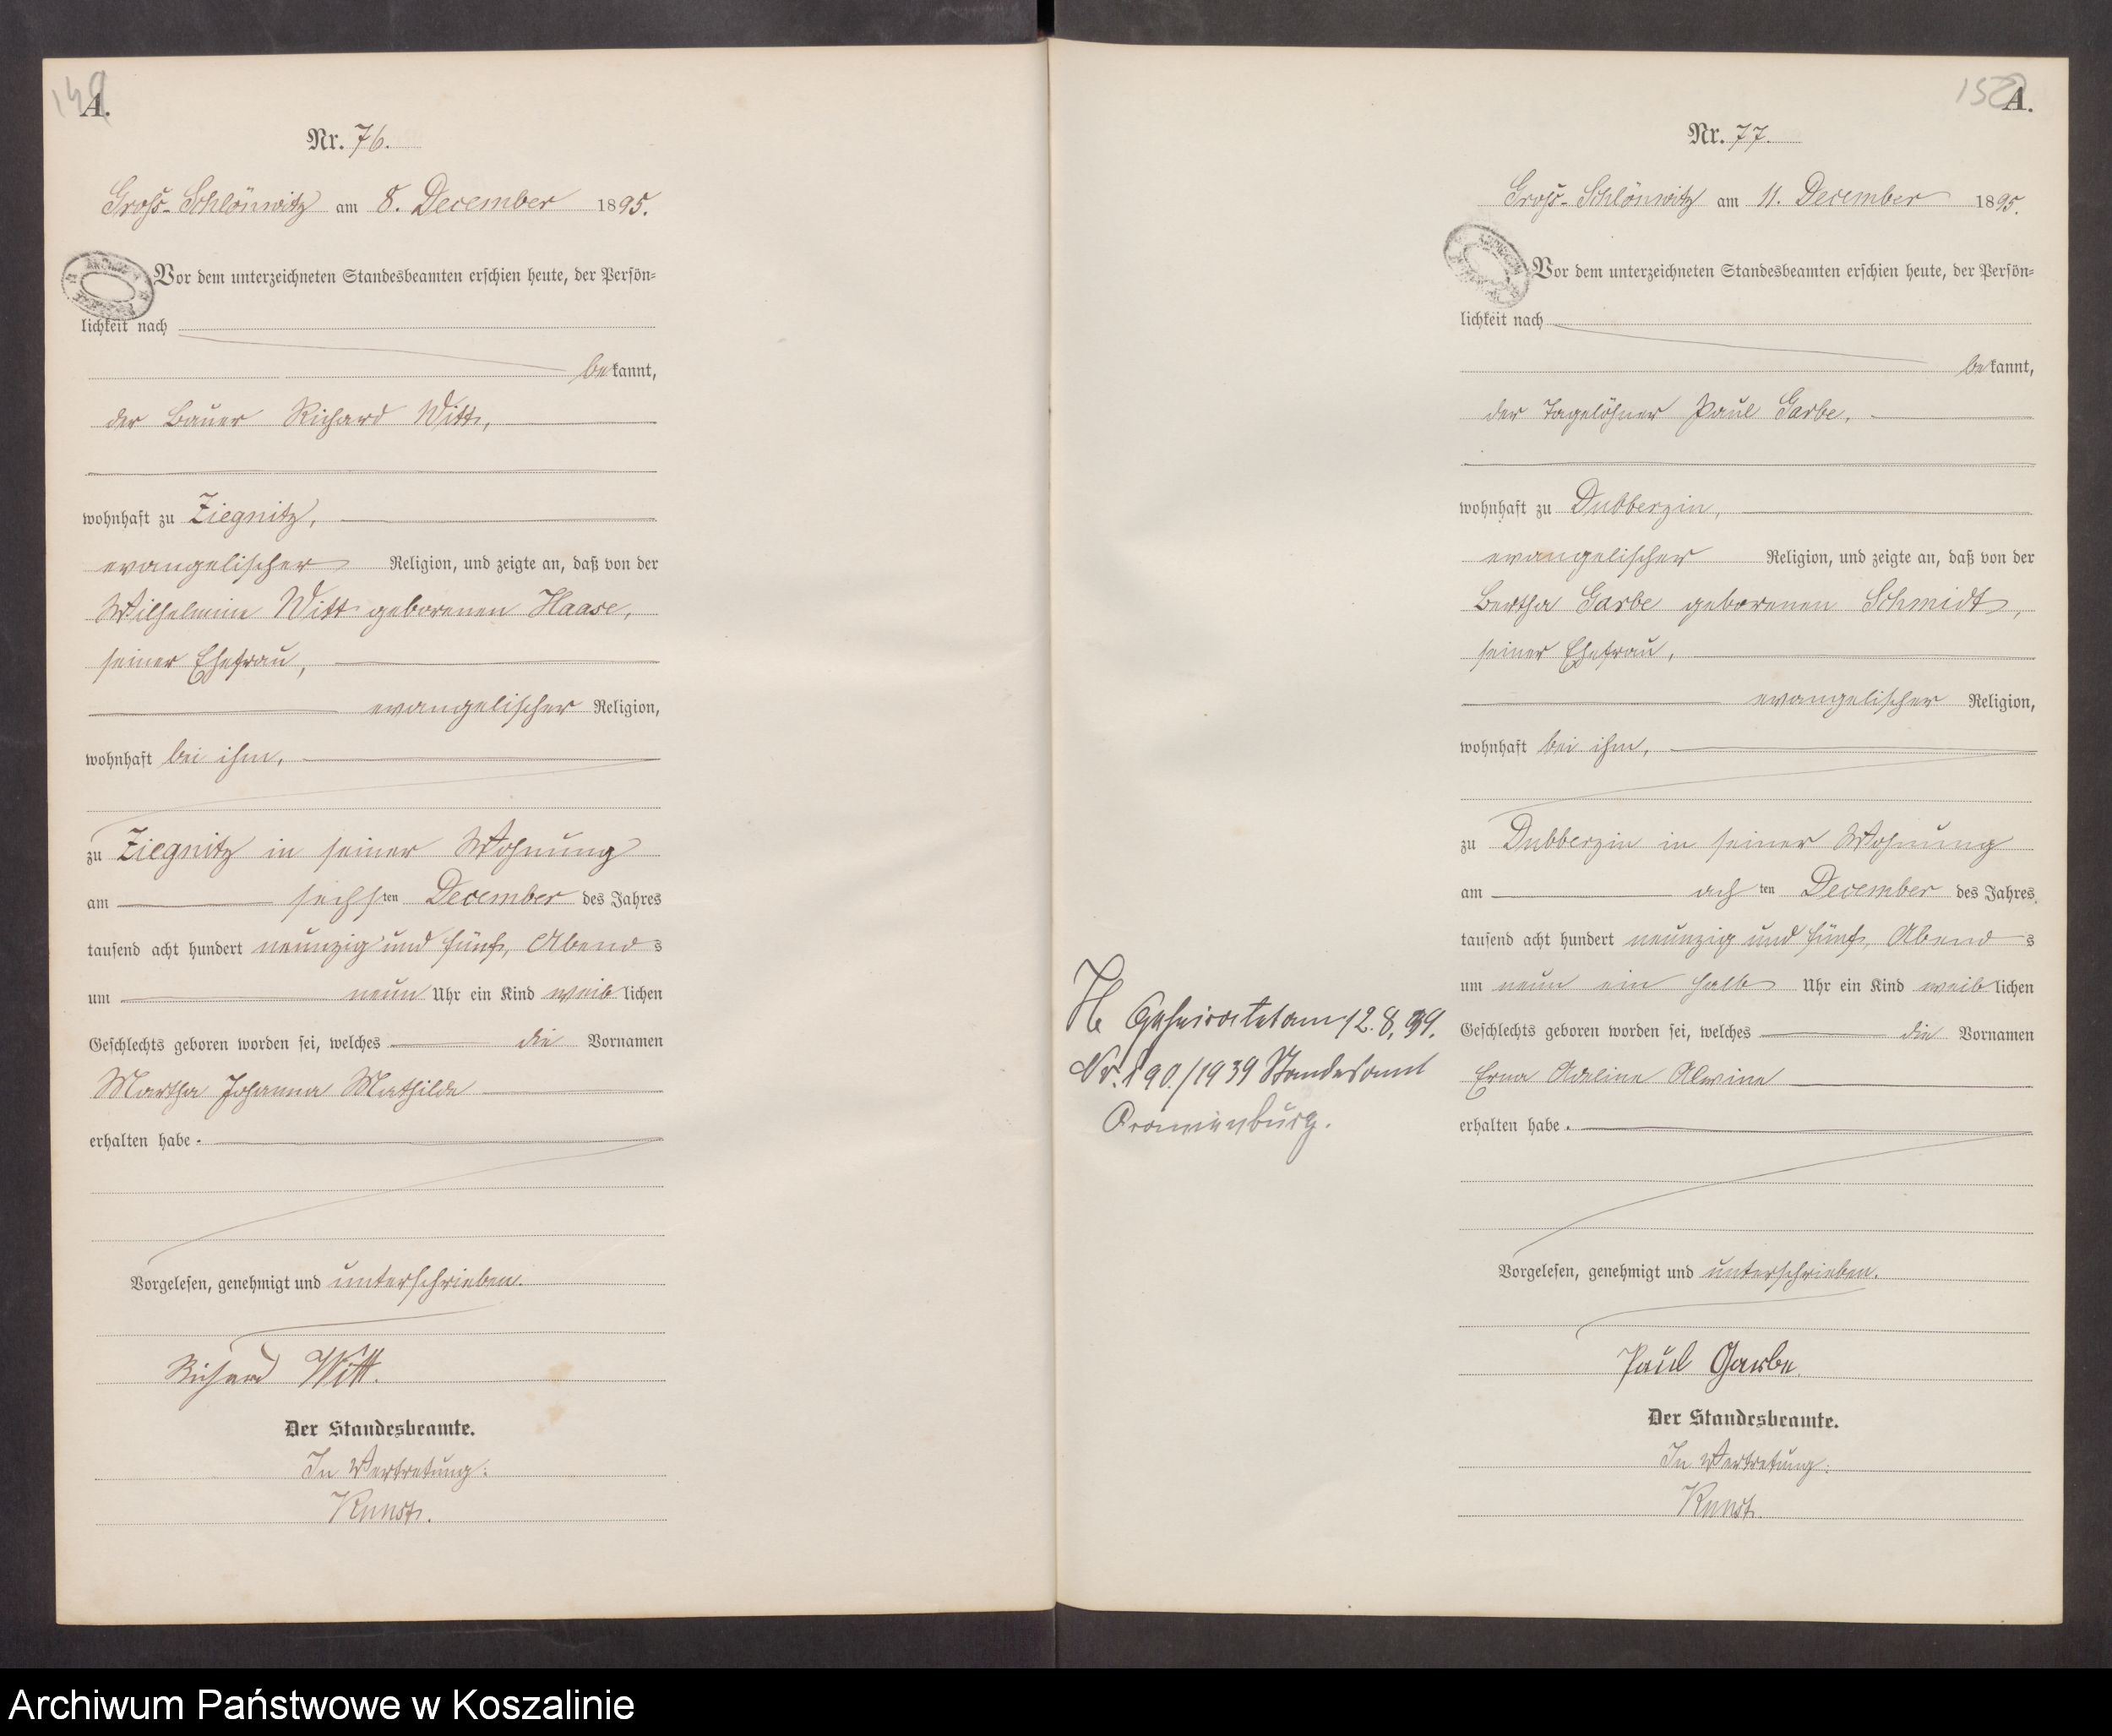 149
A.
Nr. 76.
Groß-Schlönwitz am 8. December 1895.
Vor dem unterzeichneten Standesbeamten erschien heute, der Persön=
lichkeit nach
bekannt,
der Bauer Richard Witt,
wohnhaft zu Ziegnitz,
evangelischer Religion, und zeigte an, daß von der
Wilhelmine Witt geborenen Haase,
seiner Ehefrau,
evangelischer Religion,
wohnhaft bei ihm,
zu Ziegnitz in seiner Wohnung
am sechsten December des Jahres
tausend acht hundert neunzig und fünf, Abends
um neun Uhr ein Kind weiblichen
Geschlechts geboren worden sei, welches die Vornamen
Martha Johanna Mathilde
erhalten habe.
Vorgelesen, genehmigt und unterschrieben.
Richard Witt.
Der Standesbeamte.
In Vertretung:
Kunst.
150
A.
Nr. 77.
Groß-Schlönwitz am 11. December 1895.
Vor dem unterzeichneten Standesbeamten erschien heute, der Persön=
lichkeit nach
bekannt,
der Tagelöhner Paul Garbe,
wohnhaft zu Dubberzin,
evangelischer Religion, und zeigte an, daß von der
Bertha Garbe geborenen Schmidt,
seiner Ehefrau,
evangelischer Religion,
wohnhaft bei ihm,
zu Dubberzin in seiner Wohnung
am achten December des Jahres
tausend acht hundert neunzig und fünf, Abends
um neun ein halb Uhr ein Kind weiblichen
Geschlechts geboren worden sei, welches die Vornamen
Erna Adeline Alwine
erhalten habe.
Vorgelesen, genehmigt und unterschrieben.
Paul Garbe.
Der Standesbeamte.
In Vertretung:
Kunst.
H. Geheiratet am 12.8.39.
Nr. 190/1939 Standesamt
Oranienburg.
Archiwum Państwowe w Koszalinie